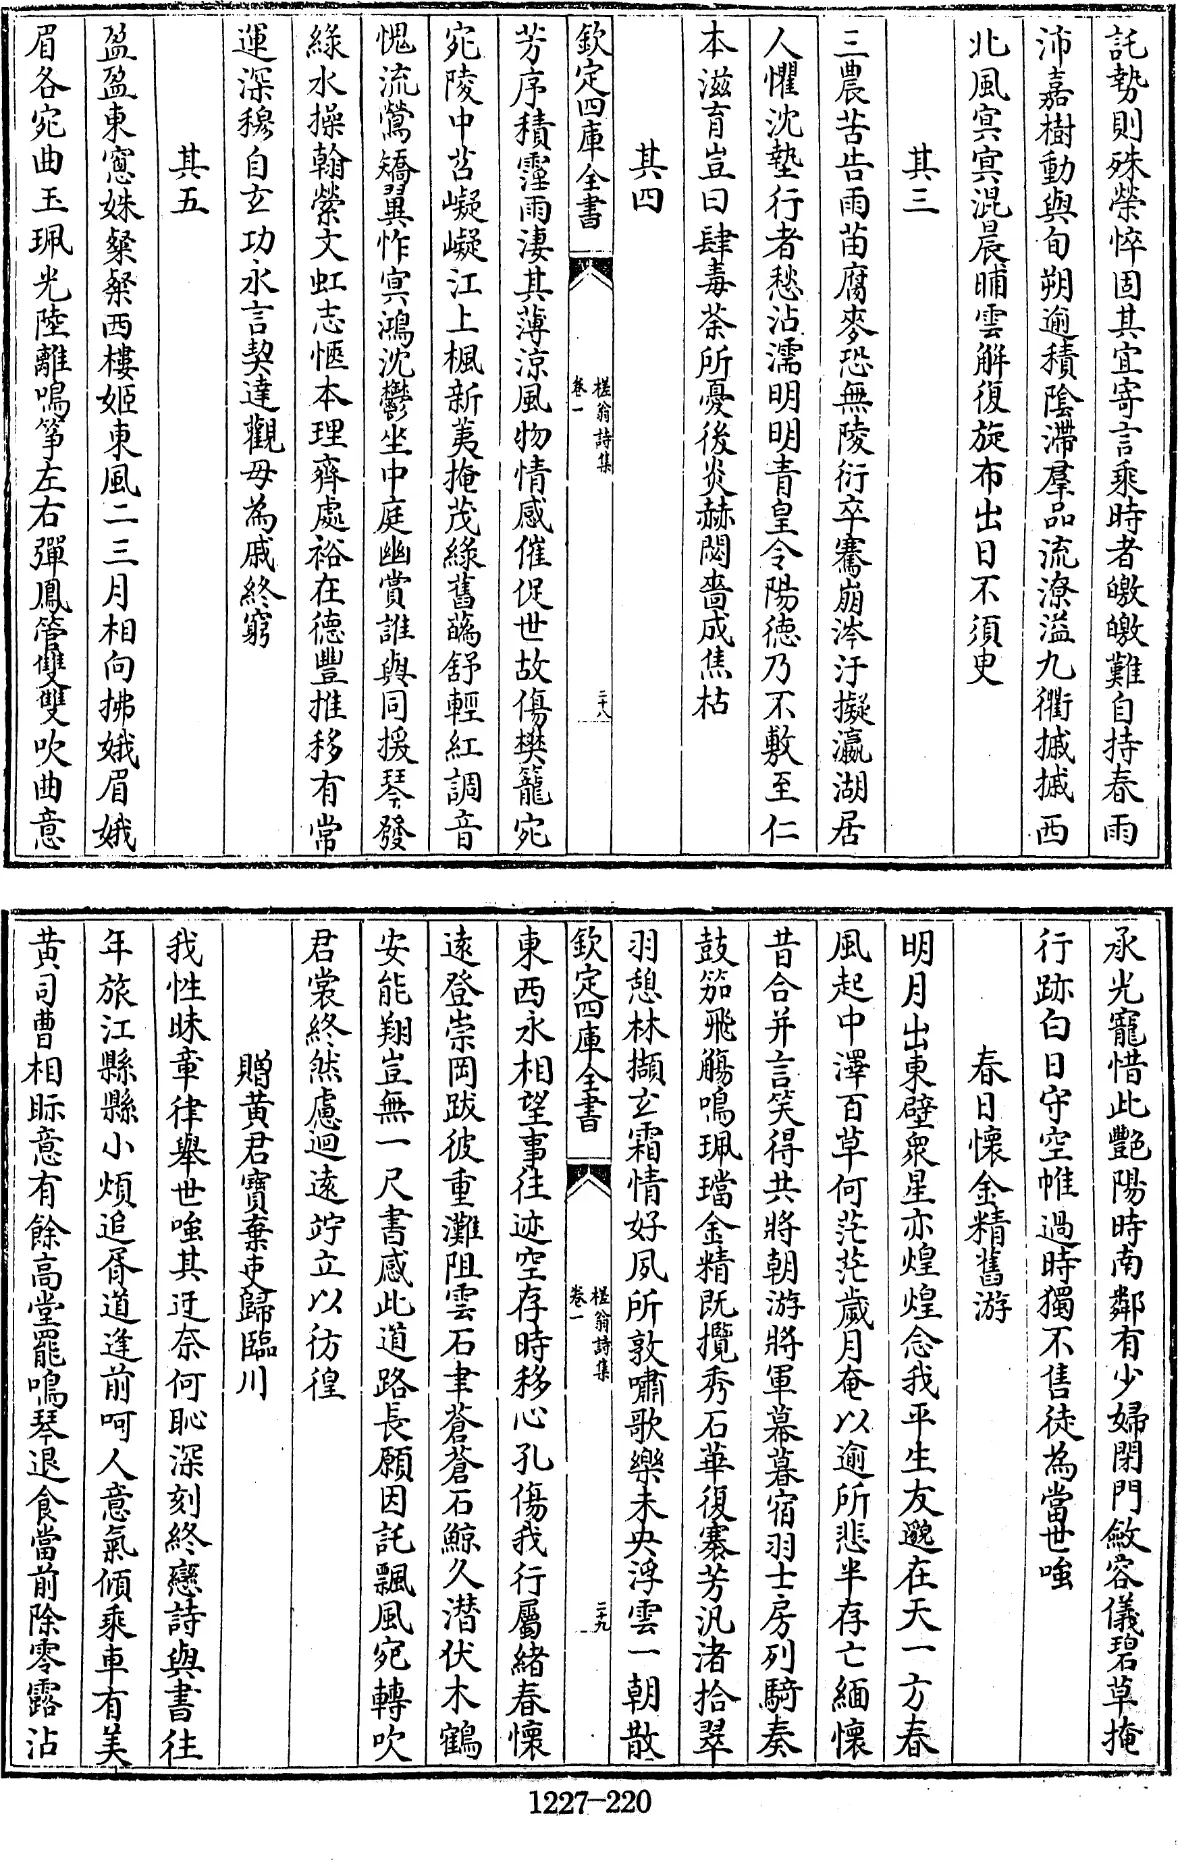 託勢則殊榮悴固其宜寄言乘時者皦皦難自持春雨
沛嘉樹動與旬朔逾積陰滯羣品流潦溢九衢摵摵西
北風冥冥混晨晡雲解復旋布出日不須臾
其三
三農苦告雨苗腐麥恐無陵衍卒騫崩涔汙擬瀛湖居
人懼沈墊行者愁沾濡明明青皇令陽德乃不敷至仁
本滋育豈曰肆毒荼所憂後炎赫閟嗇成焦枯
其四
欽定四庫全書
槎翁詩集
卷一
二十八
芳序積霪雨淒其薄涼風物情感催促世故傷樊籠宛
宛陵中苕嶷嶷江上楓新荑掩茂綠舊蘤舒輕紅調音
愧流鶯矯翼怍冥鴻沈鬱坐中庭幽賞誰與同援琴發
綠水操翰縈文虹志愜本理齊處裕在德豐推移有常
運深穆自玄功永言契達觀毋為戚終窮
其五
盈盈東窻姝粲粲西樓姬東風二三月相向拂娥眉娥
眉各宛曲玉珮光陸離鳴箏左右彈鳳管雙雙吹曲意
承光寵惜此艷陽時南鄰有少婦閉門斂容儀碧草掩
行跡白日守空帷過時獨不售徒為當世嗤
春日懷金精舊游
明月出東壁衆星亦煌煌念我平生友邈在天一方春
風起中澤百草何茫茫歲月奄以逾所悲半存亡緬懷
昔合并言笑得共將朝游將軍幕暮宿羽士房列騎奏
鼓笳飛觴鳴珮璫金精既攬秀石華復褰芳汎渚拾翠
羽憩林擷玄霜情好夙所敦嘯歌樂未央浮雲一朝散
欽定四庫全書
槎翁詩集
卷一
二十九
東西永相望事往迹空存時移心孔傷我行屬緒春懷
遠登崇岡跋彼重灘阻雲石聿蒼蒼石鯨久潛伏木鶴
安能翔豈無一尺書感此道路長願因託飄風宛轉吹
君裳終然慮迴遠竚立以彷徨
贈黄君寶棄吏歸臨川
我性昧章律舉世嗤其迂奈何恥深刻終戀詩與書往
年旅江縣縣小煩追胥道逢前呵人意氣傾乘車有美
黄司曹相眎意有餘高堂罷鳴琴退食當前除零露沾
1227-220